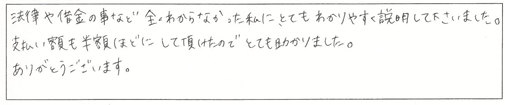 法律や借金の事など全くわからなかった私にとてもわかりやすく説明して下さいました。
支払い額も半額ほどにして頂けたのでとても助かりました。
ありがとうございます。